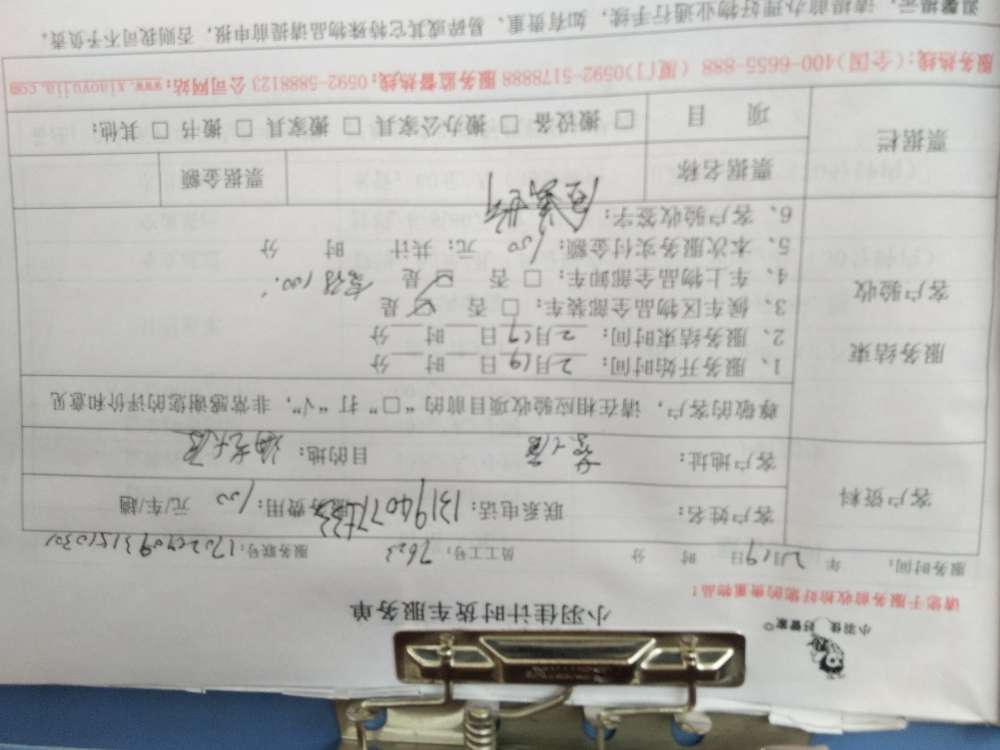 小羽佳 好管家
小羽佳计时货车服务单
请您于服务前收拾好您的贵重物品！
服务时间： 年 2月19日 时 分 员工工号：7623 服务联号：
客户资料
客户姓名： 联系电话： 服务费用：100 元/车/趟
客户地址： 目的地：
服务结束
客户验收
尊敬的客户，请在相应验收项目前的“□”打“√”，非常感谢您的评价和意见
1、服务开始时间：2月19日 时 分
2、服务结束时间：2月19日 时 分
3、候车区物品全部车装：□ 否 ☑ 是
4、车上物品全部卸车：□ 否 ☑ 是 100.
5、本次服务实付金额：100 元；共计 时 分
6、客户验收签字：
票据栏
票据名称 票据金额
项 目 □ 搬设备 □ 搬办公家具 □ 搬家具 □ 搬书 □ 其他：
服务热线：（全国）400-6655-888（厦门）0592-5178888 服务监督热线：0592-5888123 公司网站：www.xiaoyujia.com
温馨提示：请提前办理好物业通行手续，如有贵重、易碎或其它特殊物品请提前申报，否则我司不予负责。